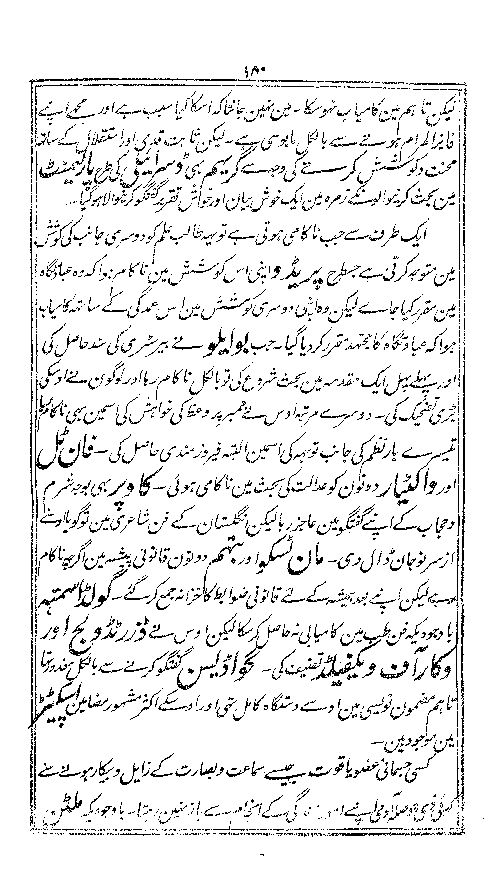 ۱۸۰
لیکن تاہم مین کامیاب نہو سکا۔ مین نہین جانتا کہ اسکا کیا سبب ہے اور مجھے اپنے
فایز المرام ہونے سے بالکل مایوسی ہے۔ لیکن ثابت قدمی اور استقلال کے ساتھ
محنت و کوشش کرنے کی وجہ سے گریہم بھی ڈسرائیلی کی طرح پارلیمنٹ
مین بحث کرنیوالونکے زمرہ مین ایک خوش بیان اور خوش تقریر گفتگو کرنیوالا ہو گیا۔
ایک طرف سے جب ناکامی ہوتی ہے تو یہہ طالب علم کو دوسری جانب کی کوشش
مین متوجہ کرتی ہے جسطرح پریڈو اپنی اس کوشش مین ناکام ہوا کہ وہ عبادتگاہ
مین مقرر کیا جاے لیکن وہ اپنی دوسری کوشش مین اس عمدگی کے ساتھ کامیاب
ہوا کہ عبادتگاہ کا مجتہد مقرر کر دیا گیا۔ جب بوایلو نے بیرسٹری کی سند حاصل کی
اور پہلے پہل ایک مقدمہ مین بحث شروع کی تو بالکل ناکام رہا اور لوگون نے اوسکی
بڑی تضحیک کی۔ دوسرے مرتبہ اوس نے ممبر پر وعظ کی خواہش کی اسمین بھی ناکام رہا
تیسرے بار نظم کی جانب توجہ کی اسمین البتہ فیروزمندی حاصل کی۔ فان ٹنل
اور والٹیار دونون کو عدالت کی بحث مین ناکامی ہوئی۔ کاوپر بھی بوجہ شرم
و حجاب کے اپنے گفتگو مین عاجز رہا لیکن انگلستان کے فن شاعری مین تو گویا اوسنے
از سر نو جان ڈالدی۔ مان ٹسکو اور بنتھم دونون قانونی پیشہ مین اگرچہ ناکام
رہے لیکن اپنے بعد ہمیشہ کے لئے قانونی ضوابط کا خزانہ جمع کر گئے۔ گولڈ اسمتھ
باوجودیکہ فن طب مین کامیابی نہ حاصل کر سکا لیکن اوس نے ڈزرٹڈ ویلج اور
وکار آف ویکفیلڈ تصنیف کی۔ گو اڈیسن گفتگو کرنے سے بالکل معذور تھا
تاہم مضمون نویسی مین اوسے دستگاہ کامل تھی اور اوسکے اکثر مشہور مضامین اسپکٹیٹر
مین موجود ہین۔
کسی جسمانی عضو یا قوت جیسے سماعت و بصارت کے زایل و بیکار ہونے سے
کسی ذی حوصلہ آدمی اپنے اور کی کے انجام سے باز نہین رہتا۔ باوجودیکہ ملٹن